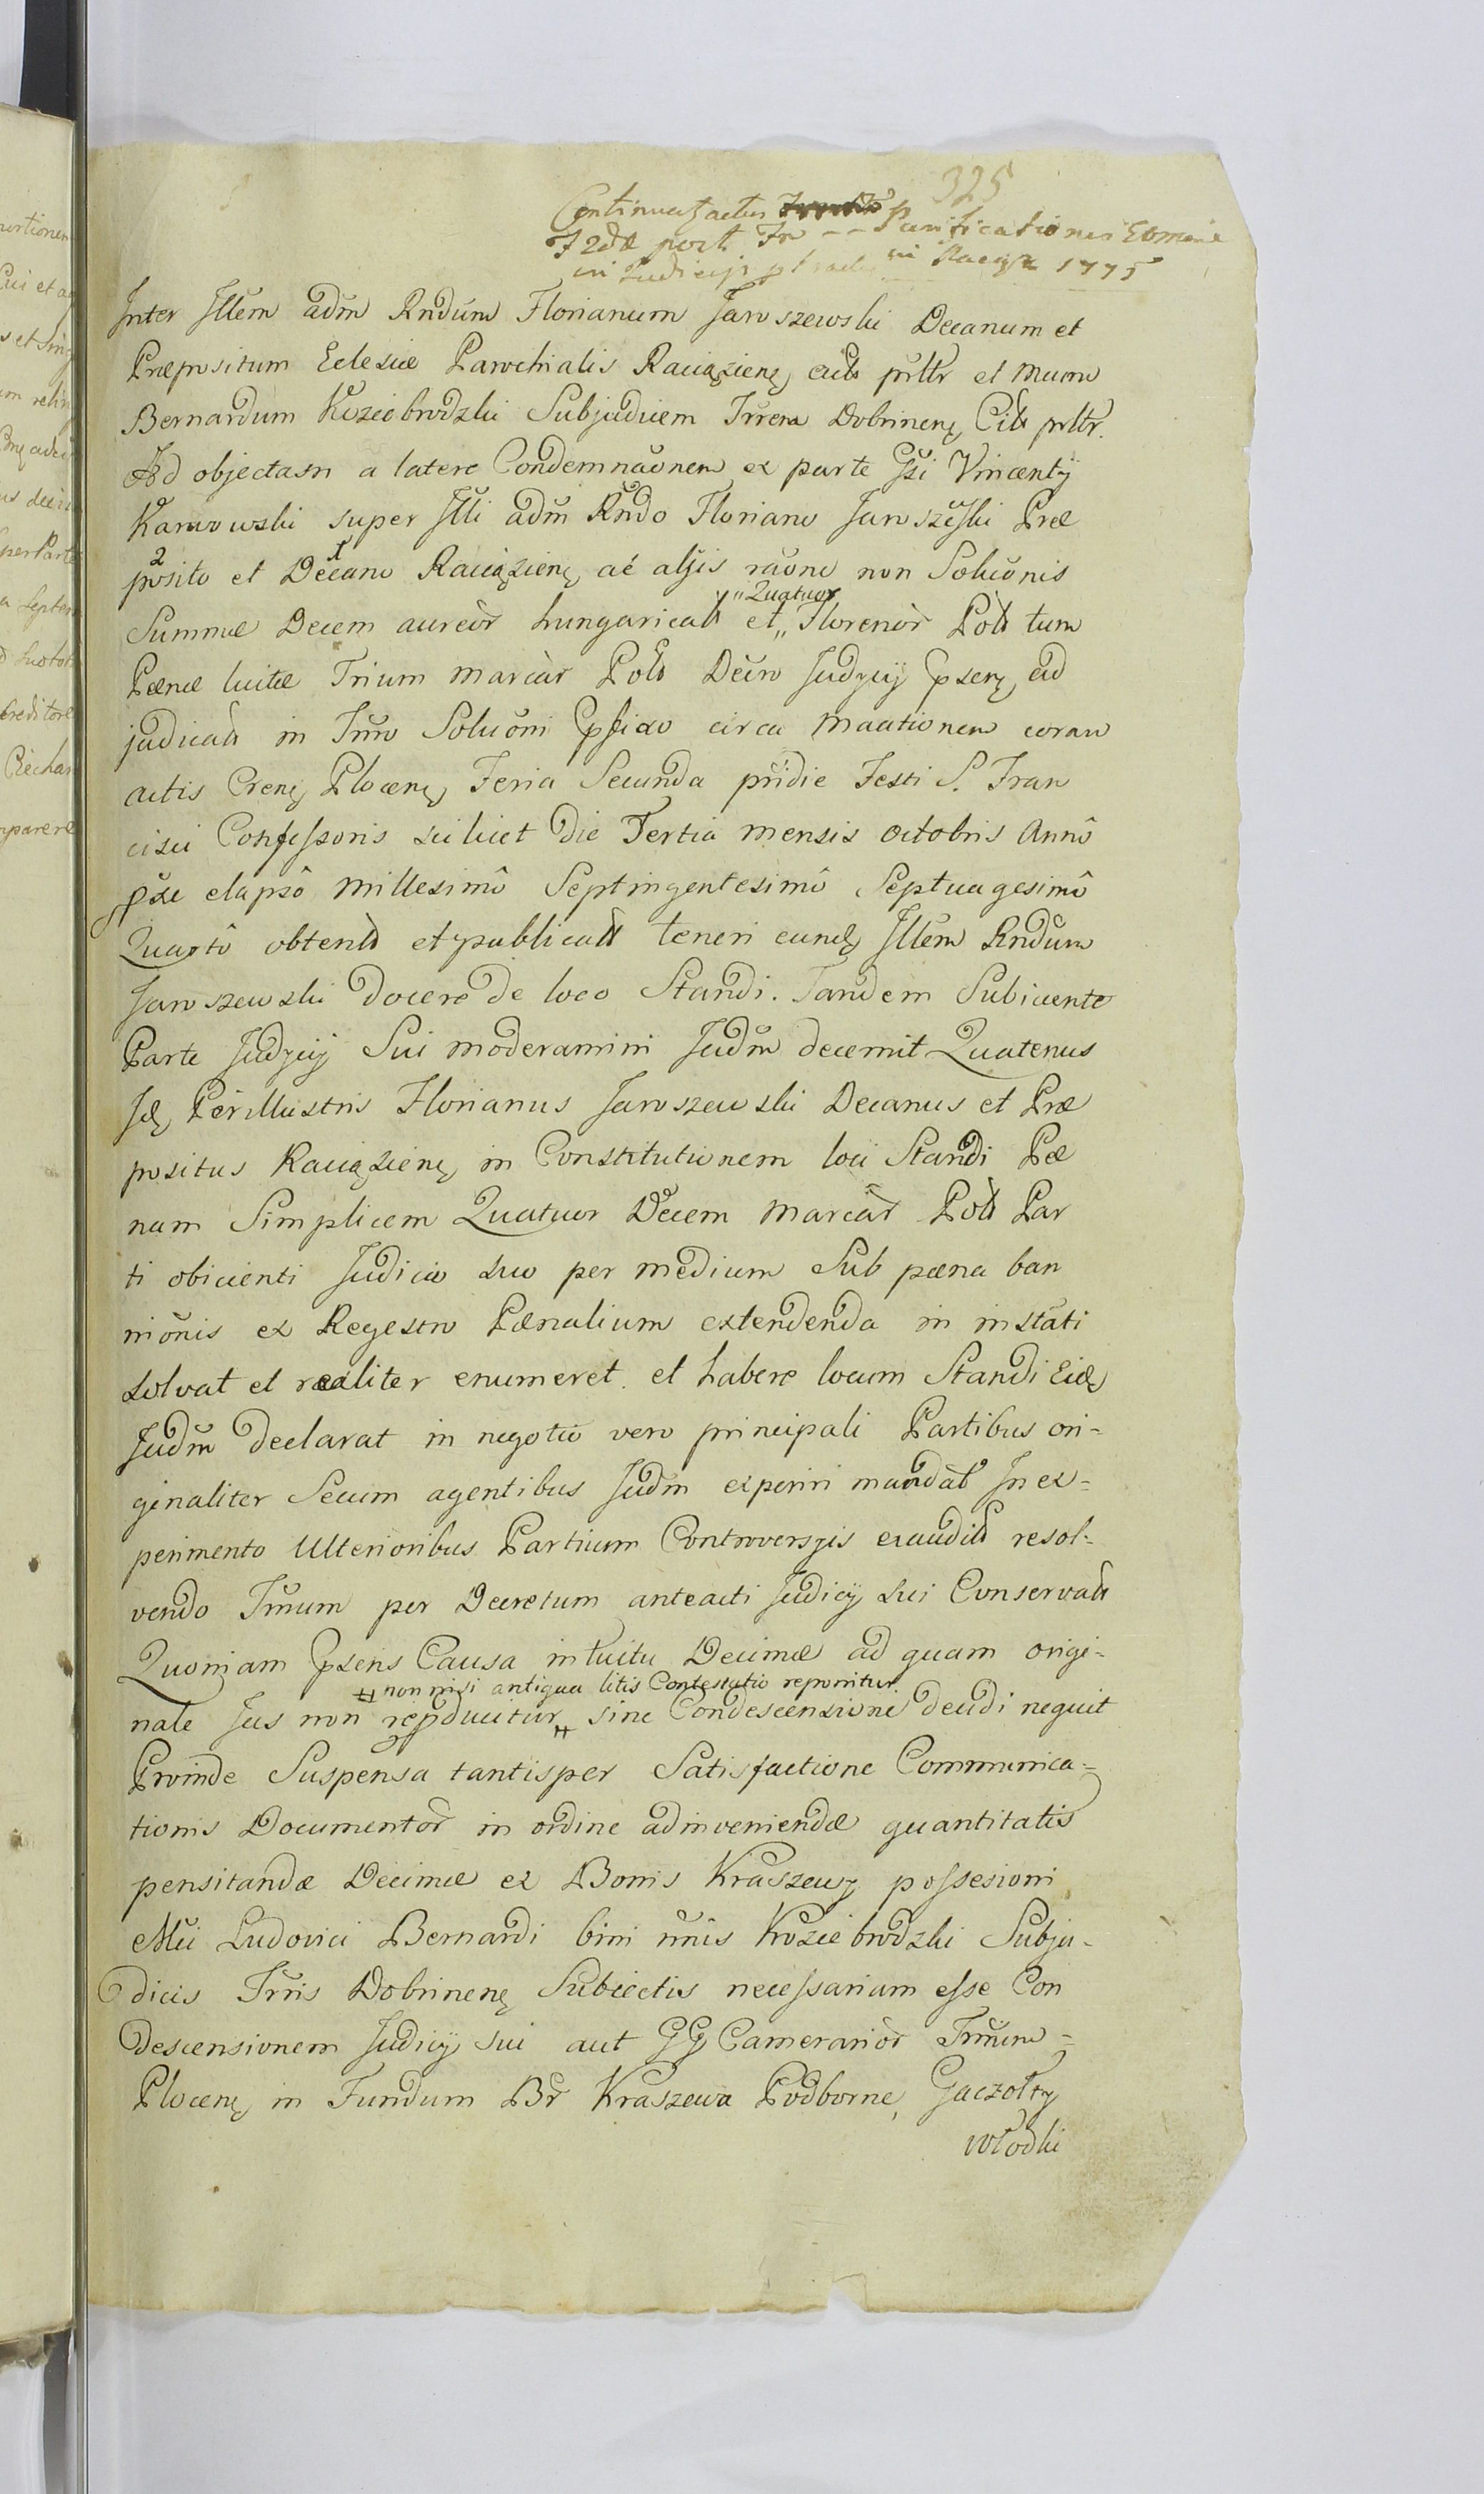 325
Continuat actus Purificationis BMariæ
F 2dæ post in Raciąż 1775
in Judicijs
Inter Illem adm Rndum Florianum Jaroszewski Decanum et
Præpositum Eclesiæ Parochialis Raciązienę actb prltr et Mucm
Bernardum Koziebrodzki Subjudicem Trrem Dobrinenę Citb prltr.
Ad objectam a latere Condemnaõnem ex parte Gsi Vincentÿ
Karwowski super Illi adm Rndo Floriano Jaroszewski Præ
posito et Decano Raciązienę aé alÿis raõne non Soluõnis
Summæ Decem aureor hungaricalł et „ Quatuor Florenor Polł tum
Pænæ luitæ Trium marcar Polł Decro Judycij Pserę ad
judicatł in Tmo Soluõni Pfixo circa Mactionem coram
actis Crenę Plocenę Feria Secunda pridie Festi S. Fran
cisci Confessoris scilicet die Tertia mensis octobris Annô
pxe elapsô millesimô Septingentesimô Septuagesimô
Quartô obtentł et publicatł teneri eundę Illem Rndum
Jaroszewski docere de loco Standi. Tandem Subicente
Parte Judycij Sui moderamini Judm decernit Quatenus
Idę Perillustris Florianus Jaroszewski Decanus et Præ
positus Raciązienę in Constitutionem loci Standi Pæ
nam Simplicem Quatuor Decem Marcar Polł Par
ti obicienti Judicio suo per medium Sub pæna ban
niõnis ex Regestro Pænalium extendenda in instãti
solvat et realiter enumeret. et habere locum Standi Eidę
Judm declarat in negotio vero principali Partibus ori-
ginaliter Secum agentibus Judm experiri mandat In ex-
perimento Ulterioribus Partium Controversÿis exauditł resol-
vendo Tmum per Decretum anteacti Judicÿ sui Conservatł
Quoniam Psens Causa intuitu Decimæ ad quam origi-
# non nisi antiqua litis Contestatio reponitur
nale Jus non repducitur # sine Condescensione decidi nequit
Proinde Suspensa tantisper Satisfactione Communica-
tionis Documentor in ordine adinveniendæ quantitatis
pensitandæ Decimæ ex Bonis Kraszewy possesioni
Mci Ludovici Bernardi bini nmis Koziebrodzki Subju-
dicis Trris Dobrinenę Subiectis necessariam esse Con
descensionem Judicÿ sui aut GG Camerarior Trrum
Plocenę in Fundum Br Kraszewa Podborne, Gaczołty
włodki